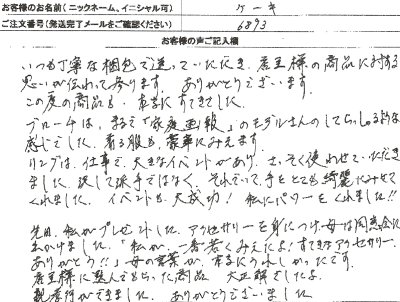 お客様のお名前(ニックネーム、イニシャル可)
ケーキ
ご注文番号(発送完了メールをご確認ください)
6893
お客様の声ご記入欄
いつも丁寧な梱包で送っていただき、店主様の商品に対する
思いが伝わって参ります。ありがとうございます。
この度の商品も、本当にすてきでした。
ブローチは、まるで「家庭画報」のモデルさんのしてらっしゃる様な
感じでした。着る服も豪華にみえます。
リングは、仕事で、大きなイベントがあり、さっそく使わせていただき
ました。決して派手ではなく、それでいて、手をとても綺麗にみせて
くれました。イベントも大成功!私にパワーをくれました!!
先日、私がプレゼントした、アクセサリーを身につけ、母は同窓会に
出かけました。「私が、一番若くみえたよ!すてきなアクセサリー、
ありがとう!!」母の言葉が、本当にうれしかったです。
店主様に選んでもらった商品、大正解でしたよ。
親孝行ができました。ありがとうございました